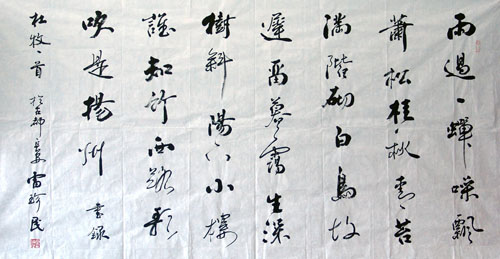 雨過一蟬噪飄
蕭松桂秋青苔
滿階砌白鳥故
遲留暮靄生深
樹斜陽下小樓
誰知竹西路歌
吹是揚州 書錄
杜牧一首 於古都長安 雷珍民